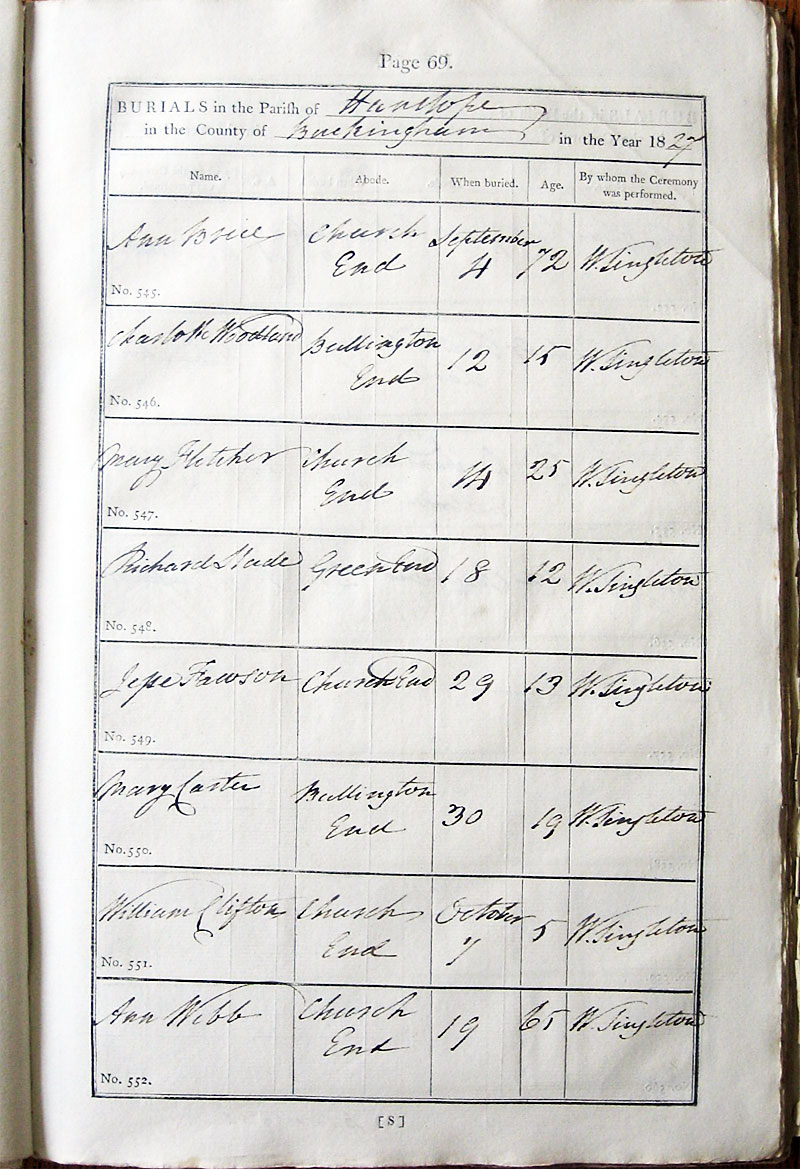 Page 69.
BURIALS in the Parish of Hanslope
in the County of Buckingham in the Year 1827
Name. Abode. When buried. Age. By whom the Ceremony was performed.
Ann Brice Church End September 4 72 W. Singleton
No. 545.
Charlotte Woodland Bullington End 12 15 W. Singleton
No. 546.
Mary Fletcher Church End 14 25 W. Singleton
No. 547.
Richard Slade Green End 18 12 W. Singleton
No. 548.
Jesse Fawson Church End 29 13 W. Singleton
No. 549.
Mary Carter Bullington End 30 19 W. Singleton
No. 550.
William Clifton Church End October 7 5 W. Singleton
No. 551.
Ann Webb Church End 19 65 W. Singleton
No. 552.
[S]